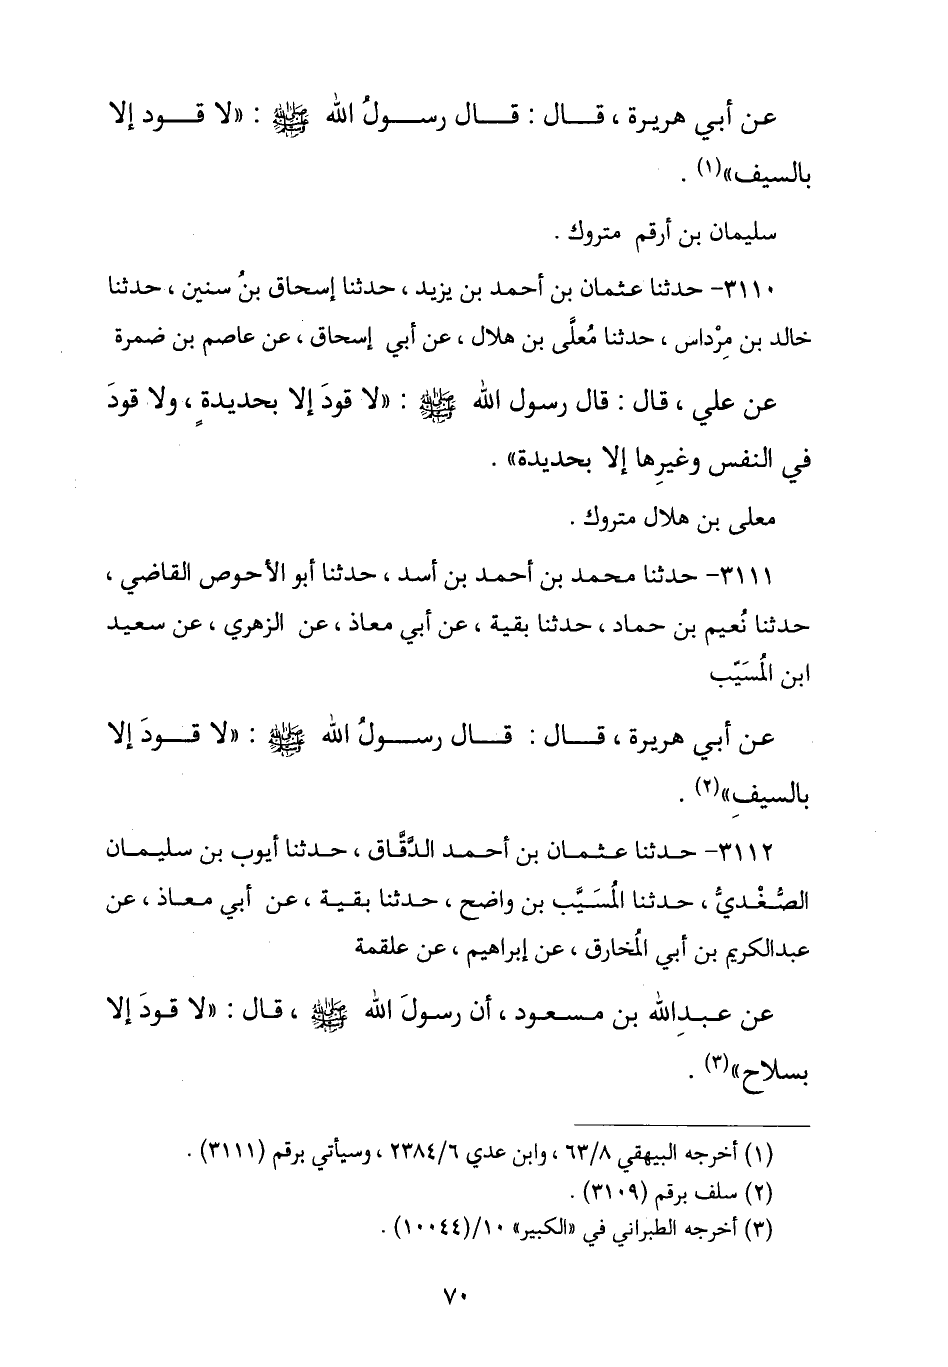 عن أبي هريرة ، قـــال : قـــال رســـولُ الله ﷺ : «لا قـــود إلا
بالسيف»(١) .
سليمان بن أرقم متروك .
٣١١٠- حدثنا عثمان بن أحمد بن يزيد ، حدثنا إسحاق بنُ سنين ، حدثنا
خالد بن مِرْداس ، حدثنا مُعلَّى بن هلال ، عن أبي إسحاق ، عن عاصم بن ضمرة
عن علي ، قال : قال رسول الله ﷺ : «لا قودَ إلا بحديدةٍ ، ولا قودَ
في النفس وغيرِها إلا بحديدة» .
معلى بن هلال متروك .
٣١١١- حدثنا محمد بن أحمد بن أسد ، حدثنا أبو الأحوص القاضي ،
حدثنا نُعيم بن حماد ، حدثنا بقية ، عن أبي معاذ ، عن الزهري ، عن سعيد
ابن المُسَيّب
عن أبي هريرة ، قـــال : قـــال رســـولُ الله ﷺ : «لا قـــودَ إلا
بالسيفِ»(٢) .
٣١١٢- حدثنا عثمان بن أحمد الدَّقَّاق ، حدثنا أيوب بن سليمان
الصُّغْديُّ ، حدثنا المُسَيَّب بن واضح ، حدثنا بقية ، عن أبي معاذ ، عن
عبدالكريم بن أبي المُخارق ، عن إبراهيم ، عن علقمة
عن عبدِالله بن مسعود ، أن رسولَ الله ﷺ ، قال : «لا قودَ إلا
بسلاح»(٣) .
(١) أخرجه البيهقي ٦٣/٨ ، وابن عدي ٢٣٨٤/٦ ، وسيأتي برقم (٣١١١) .
(٢) سلف برقم (٣١٠٩) .
(٣) أخرجه الطبراني في «الكبير» ١٠/(١٠٠٤٤) .
٧٠